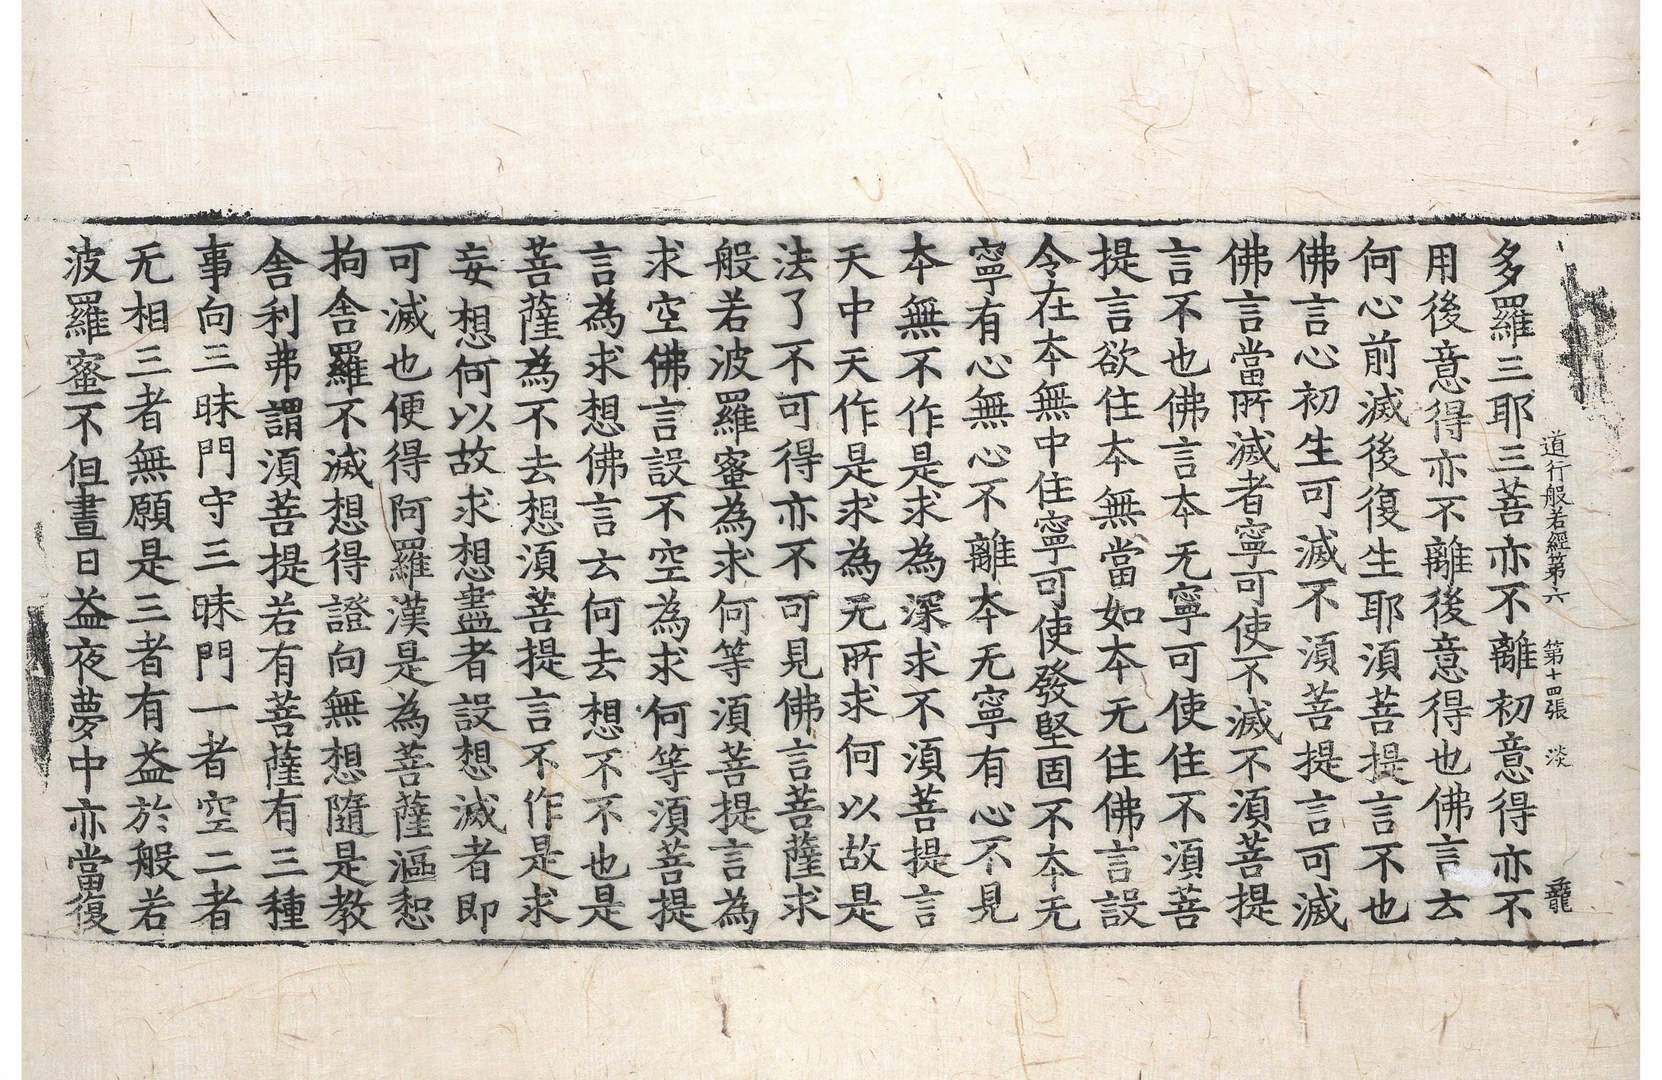 道行般若經第六 第十四張 淡
多羅三耶三菩亦不離初意得亦不
用後意得亦不離後意得也佛言云
何心前滅後後復生耶湏菩提言不也
佛言心初生可滅不湏菩提言可滅
佛言當所滅者寧可使不滅不湏菩提
言不也佛言本无寧可使住不湏菩
提言欲住本無當如本无住佛言設
令在本無中住寧可使發堅固不本无
寧有心無心不離本无寧有心不見
本無不作是求為深求不湏菩提言
天中天作是求為无所求何以故是
法了不可得亦不可見佛言菩薩求
般若波羅蜜為求何等湏菩提言為
求空佛言設不空為求何等湏菩提
言為求想佛言云何去想不不也是
菩薩為不去想湏菩提言不作是求
妄想何以故求想盡者設想滅者即
可滅也便得阿羅漢是為菩薩漚惒
拘舍羅不滅想得證向無想隨是教
舎利弗謂湏菩提若有菩薩有三種
事向三昧門守三昧門一者空二者
无相三者無願是三者有益於般若
波羅蜜不但晝日益夜夢中亦當復